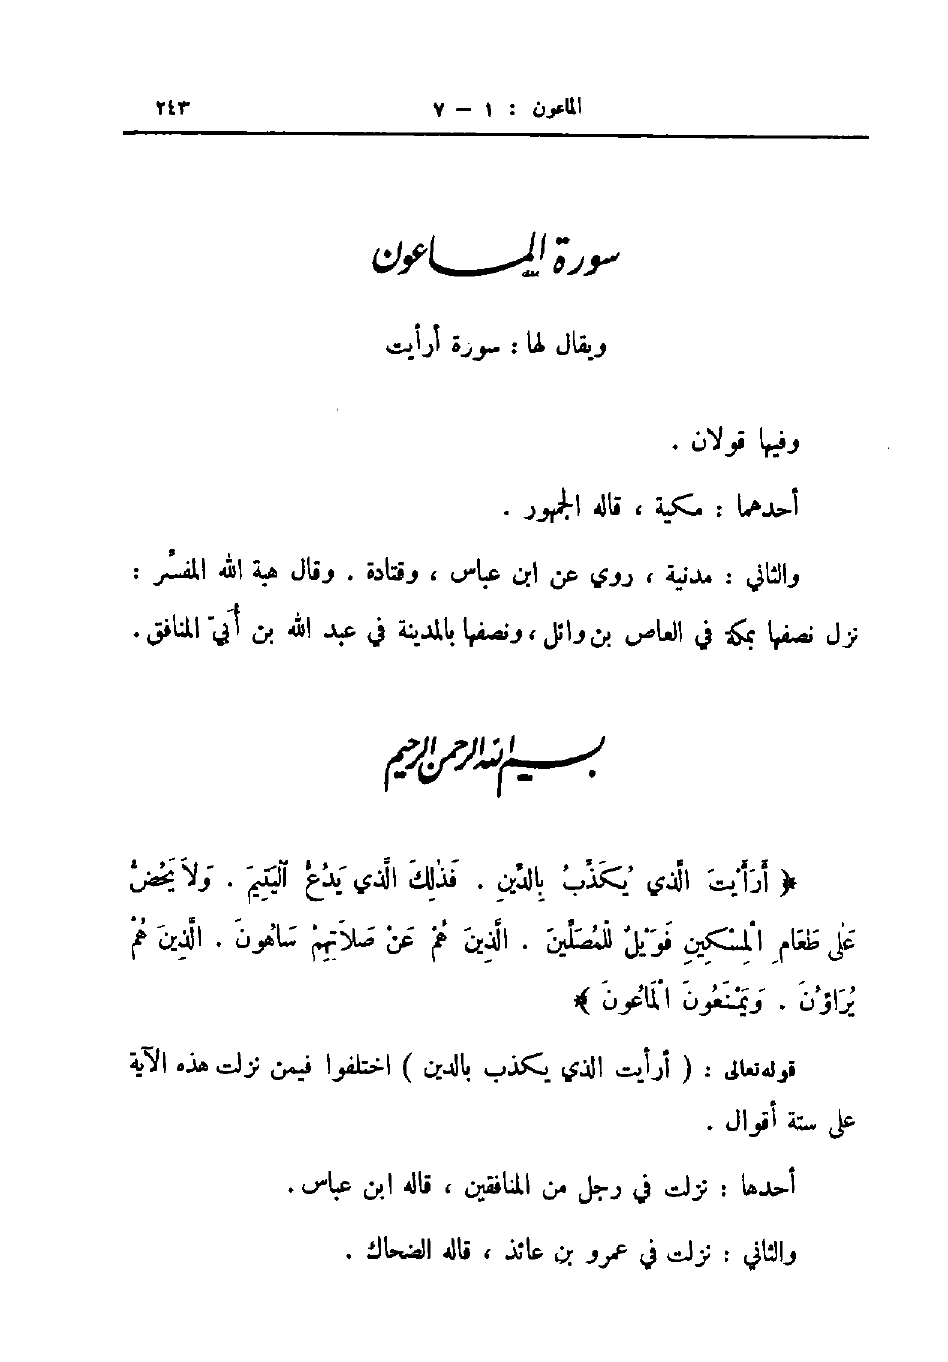 الماعون : ١ – ٧ ٢٤٣
سورة الماعون
ويقال لها : سورة أرأيت
وفيها قولان .
أحدهما : مكية ، قاله الجمهور .
والثاني : مدنية ، روي عن ابن عباس ، وقتادة . وقال هبة الله المفسِّر :
نزل نصفها بمكة في العاص بن وائل ، ونصفها بالمدينة في عبد الله بن أُبيّ المنافق .
بسم الله الرحمن الرحيم
﴿ أَرَأَيْتَ الَّذي يُكَذِّبُ بِالدِّينِ . فَذٰلِكَ الَّذي يَدُعُّ ٱليَتِيمَ . وَلاَ يَحُضُّ
عَلٰى طَعَامِ الْمِسْكِينِ فَوَيْلٌ لِلْمُصَلِّينَ . الَّذِينَ هُمْ عَنْ صَلاَتِهِمْ سَاهُونَ . الَّذِينَ هُمْ
يُرَاؤُنَ . وَيَمْنَعُونَ الْمَاعُونَ ﴾
قوله تعالى : ( أرأيت الذي يكذب بالدين ) اختلفوا فيمن نزلت هذه الآية
على ستة أقوال .
أحدها : نزلت في رجل من المنافقين ، قاله ابن عباس .
والثاني : نزلت في عمرو بن عائذ ، قاله الضحاك .